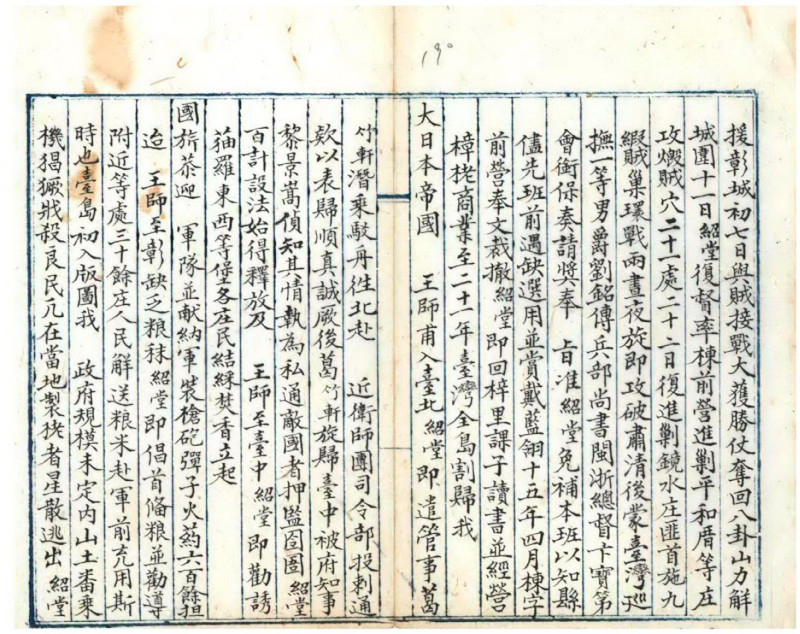 援彰城初七日與賊接戰大獲勝仗奪回八卦山力解
城圍十一日紹堂復督率棟前營進剿平和厝等庄
攻燬賊穴二十一處二十二日復進剿鏡水庄匪首施九
緞賊巢環戰兩晝夜旋即攻破肅清後蒙臺灣巡
撫一等男爵劉銘傳兵部尚書閩浙總督卞寶第
會銜保奏請獎奉 旨准紹堂免補本班以知縣
儘先班前遇缺選用並賞戴藍翎十五年四月棟字
前營奉文裁撤紹堂即回梓里課子讀書並經營
樟栳商業至二十一年臺灣全島割歸我
大日本帝國 王師甫入臺北紹堂即遣管事葛
竹軒潛乘駁舟往北赴 近衛師團司令部投剌通
欵以表歸順真誠厥後葛竹軒旋歸臺中被府知事
黎景嵩偵知其情執為私通敵國者押監囹圄紹堂
百計設法始得釋放及 王師至臺中紹堂即勸誘
猫羅東西等堡各庄民結綵焚香立起
國旂恭迎 軍隊並献納軍裝槍砲彈子火药六百餘担
迨 王師至彰缺乏粮秣紹堂即倡首備粮並勸導
附近等處三十餘庄人民觧送粮米赴軍前充用斯
時也臺島初入版圖我 政府規模未定內山土番乘
機猖獗戕殺良民凡在當地製栳者星散逃出紹堂